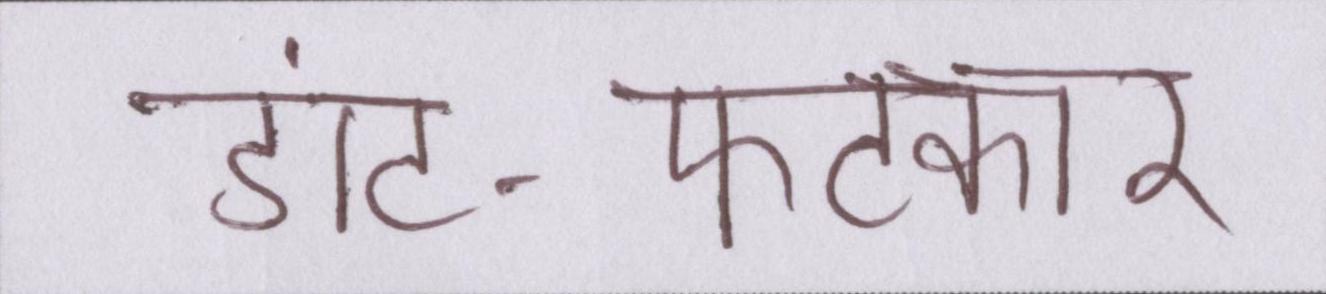 डांट- फटकार